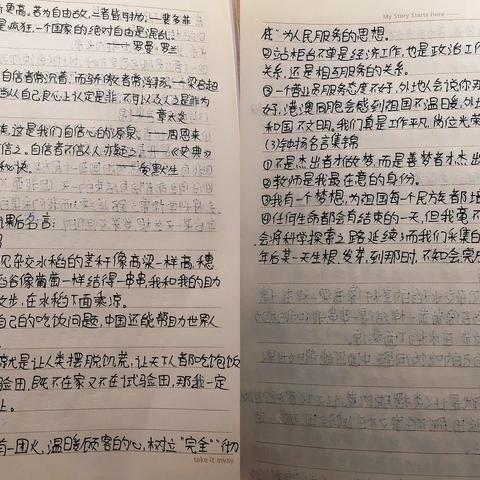 更高。若为自由故,二者皆可抛。——裴多菲
是疯狂,一个国家的绝对自由是混乱。
——罗曼·罗兰
自信者常沉着,而骄傲者常浮扬。——梁启超
当从自己良心上认定是非,不可以众人之是非为
——章太炎
族,这是我们自信心的源泉。——周恩来
信之。自信者不信人,亦疑之。——《史典》
秘诀。——爱默生
课后名言:
见杂交水稻的茎秆像高粱一样高,穗
稻谷像葡萄一样结得一串串,我和我的助
散步,在水稻下面乘凉。
自己的吃饭问题,中国还能帮助世界人
就是让人类摆脱饥荒,让天下人都吃饱饭
验田,既不在家又不在试验田,那我一定
上。
有一团火,温暖顾客的心,树立“完全”“彻
take it away
My Story Starts Here
底”为人民服务的思想。
②站柜台不单是经济工作,也是政治工作
关系,还是相互服务的关系。
③一个营业员服务态度不好,外地人会说你那
好,港澳同胞会感到祖国不温暖,外
和国不文明。我们真是工作平凡,岗位光荣
(3)钟扬名言集锦
①不是杰出者才做梦,而是善梦者才杰出
②教师是我最在意的身份。
③我有一个梦想,为祖国每个民族都培
④任何生命都会有结束的一天,但我毫不
会将科学探索之路延续;而我们采集的
年后某一天生根、发芽,到那时,不知会完成